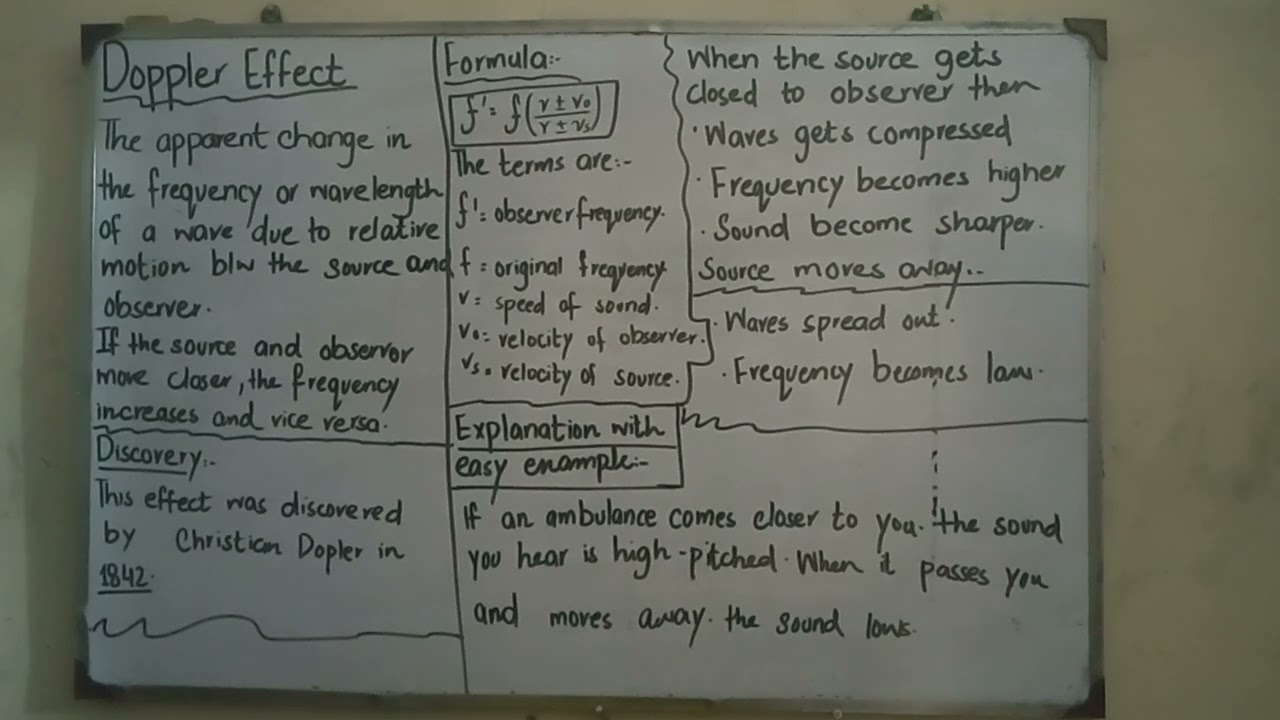 Doppler Effect
The apparent change in
the frequency or wavelength
of a wave due to relative
motion b/w the source and
observer.
If the source and observor
move closer, the frequency
increases and vice versa.
Discovery:-
This effect was discovered
by Christian Dopler in
1842.
Formula:-
f' = f(v ± vo / v ± vs)
The terms are:-
f' = observer frequency.
f = original frequency
v = speed of sound.
vo = velocity of observer.
vs = velocity of source.
When the source gets
closed to observer then
· Waves gets compressed
· Frequency becomes higher
· Sound become sharper.
Source moves away..
· Waves spread out.
· Frequency becomes low.
Explanation with
easy example:-
If an ambulance comes closer to you. the sound
you hear is high-pitched. When it passes you
and moves away. the sound lows.